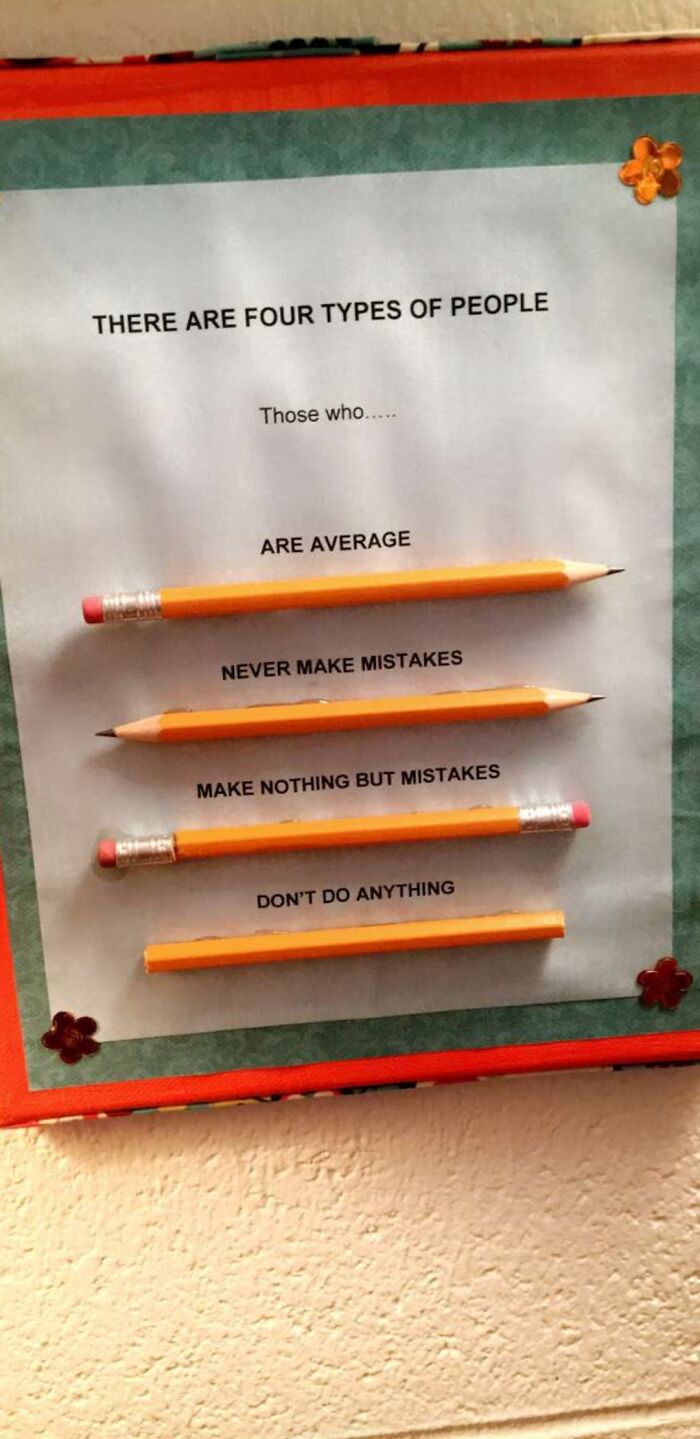 THERE ARE FOUR TYPES OF PEOPLE
Those who.....
ARE AVERAGE
NEVER MAKE MISTAKES
MAKE NOTHING BUT MISTAKES
DON'T DO ANYTHING